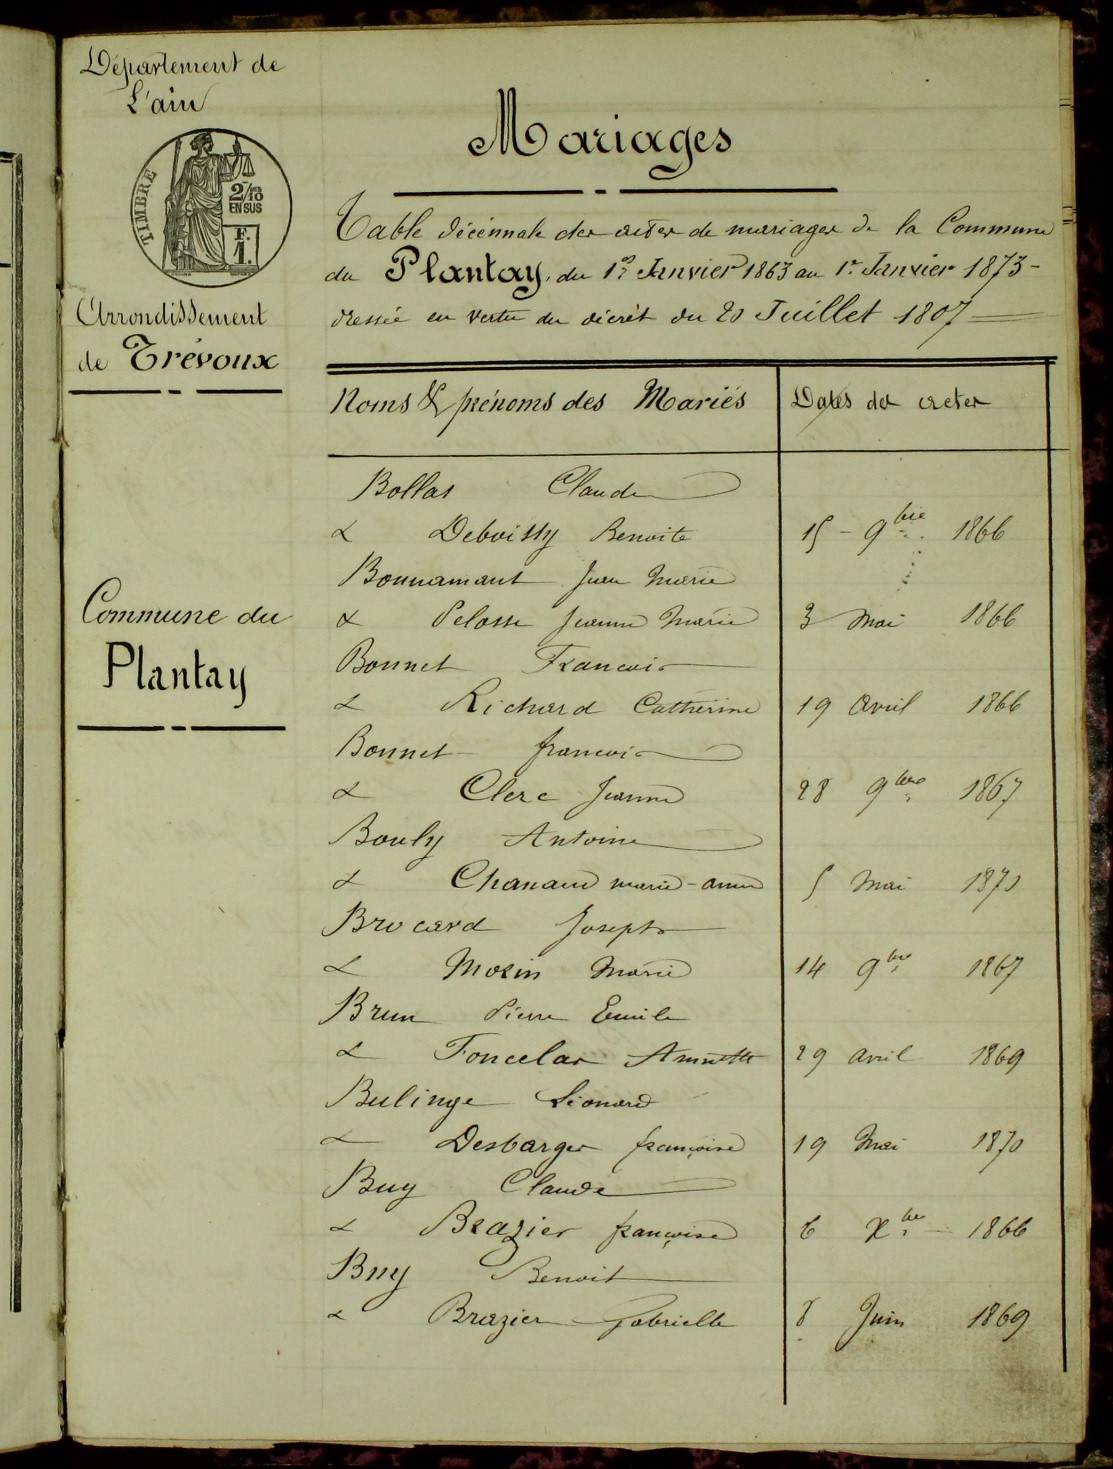 Département de
L'ain
TIMBRE
2/10
EN SUS
F.
1.
Arrondissement
de Trévoux
Commune du
Plantay
Mariages
Table décennale des actes de mariages de la Commune
du Plantay, du 1er Janvier 1863 au 1er Janvier 1873 -
dressée en vertu du décrèt du 20 Juillet 1807
Noms & prénoms des Mariés Dates des actes
Bollas Claude
& Deboissy Benoite 15 - 9bre 1866
Bonnamant Jean Marie
& Pelosse Jeanne Marie 3 Mai 1866
Bonnet Francois
& Richard Catherine 19 Avril 1866
Bonnet francois
& Clerc Jeanne 28 9bre 1867
Bouly Antoine
& Chanaud marie-anne 5 Mai 1870
Brocard Joseph
& Morin Marie 14 9bre 1867
Brun Pierre Emile
& Foncelas Annette 29 Avril 1869
Bulinge Léonard
& Desbarges françoise 19 Mai 1870
Buy Claude
& Brazier françoise 6 Xbre 1866
Buy Benoit
& Brazier Gabrielle 8 Juin 1869